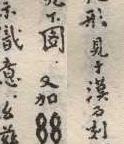 形見于漢石刻
下固 又加88
示識意